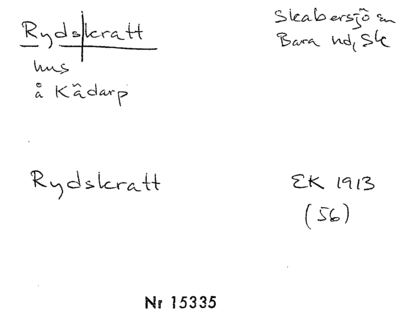 Rydskratt
Skabersjö sn
Bara hd, Sk
hus
å Kådarp
Rydskratt
EK 1913
(56)
Nr 15335